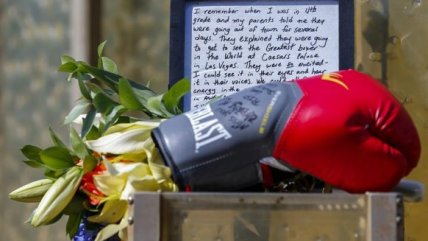 I remember when I was in 4th
grade and my parents told me they
were going out of town for several
days. They explained they were going
to get to see the Greatest boxer
in the World at Caesars Palace
in Las Vegas. They were so excited-
I could see it in their eyes and hear
it in their voices. We
energy in the
EVERLAST